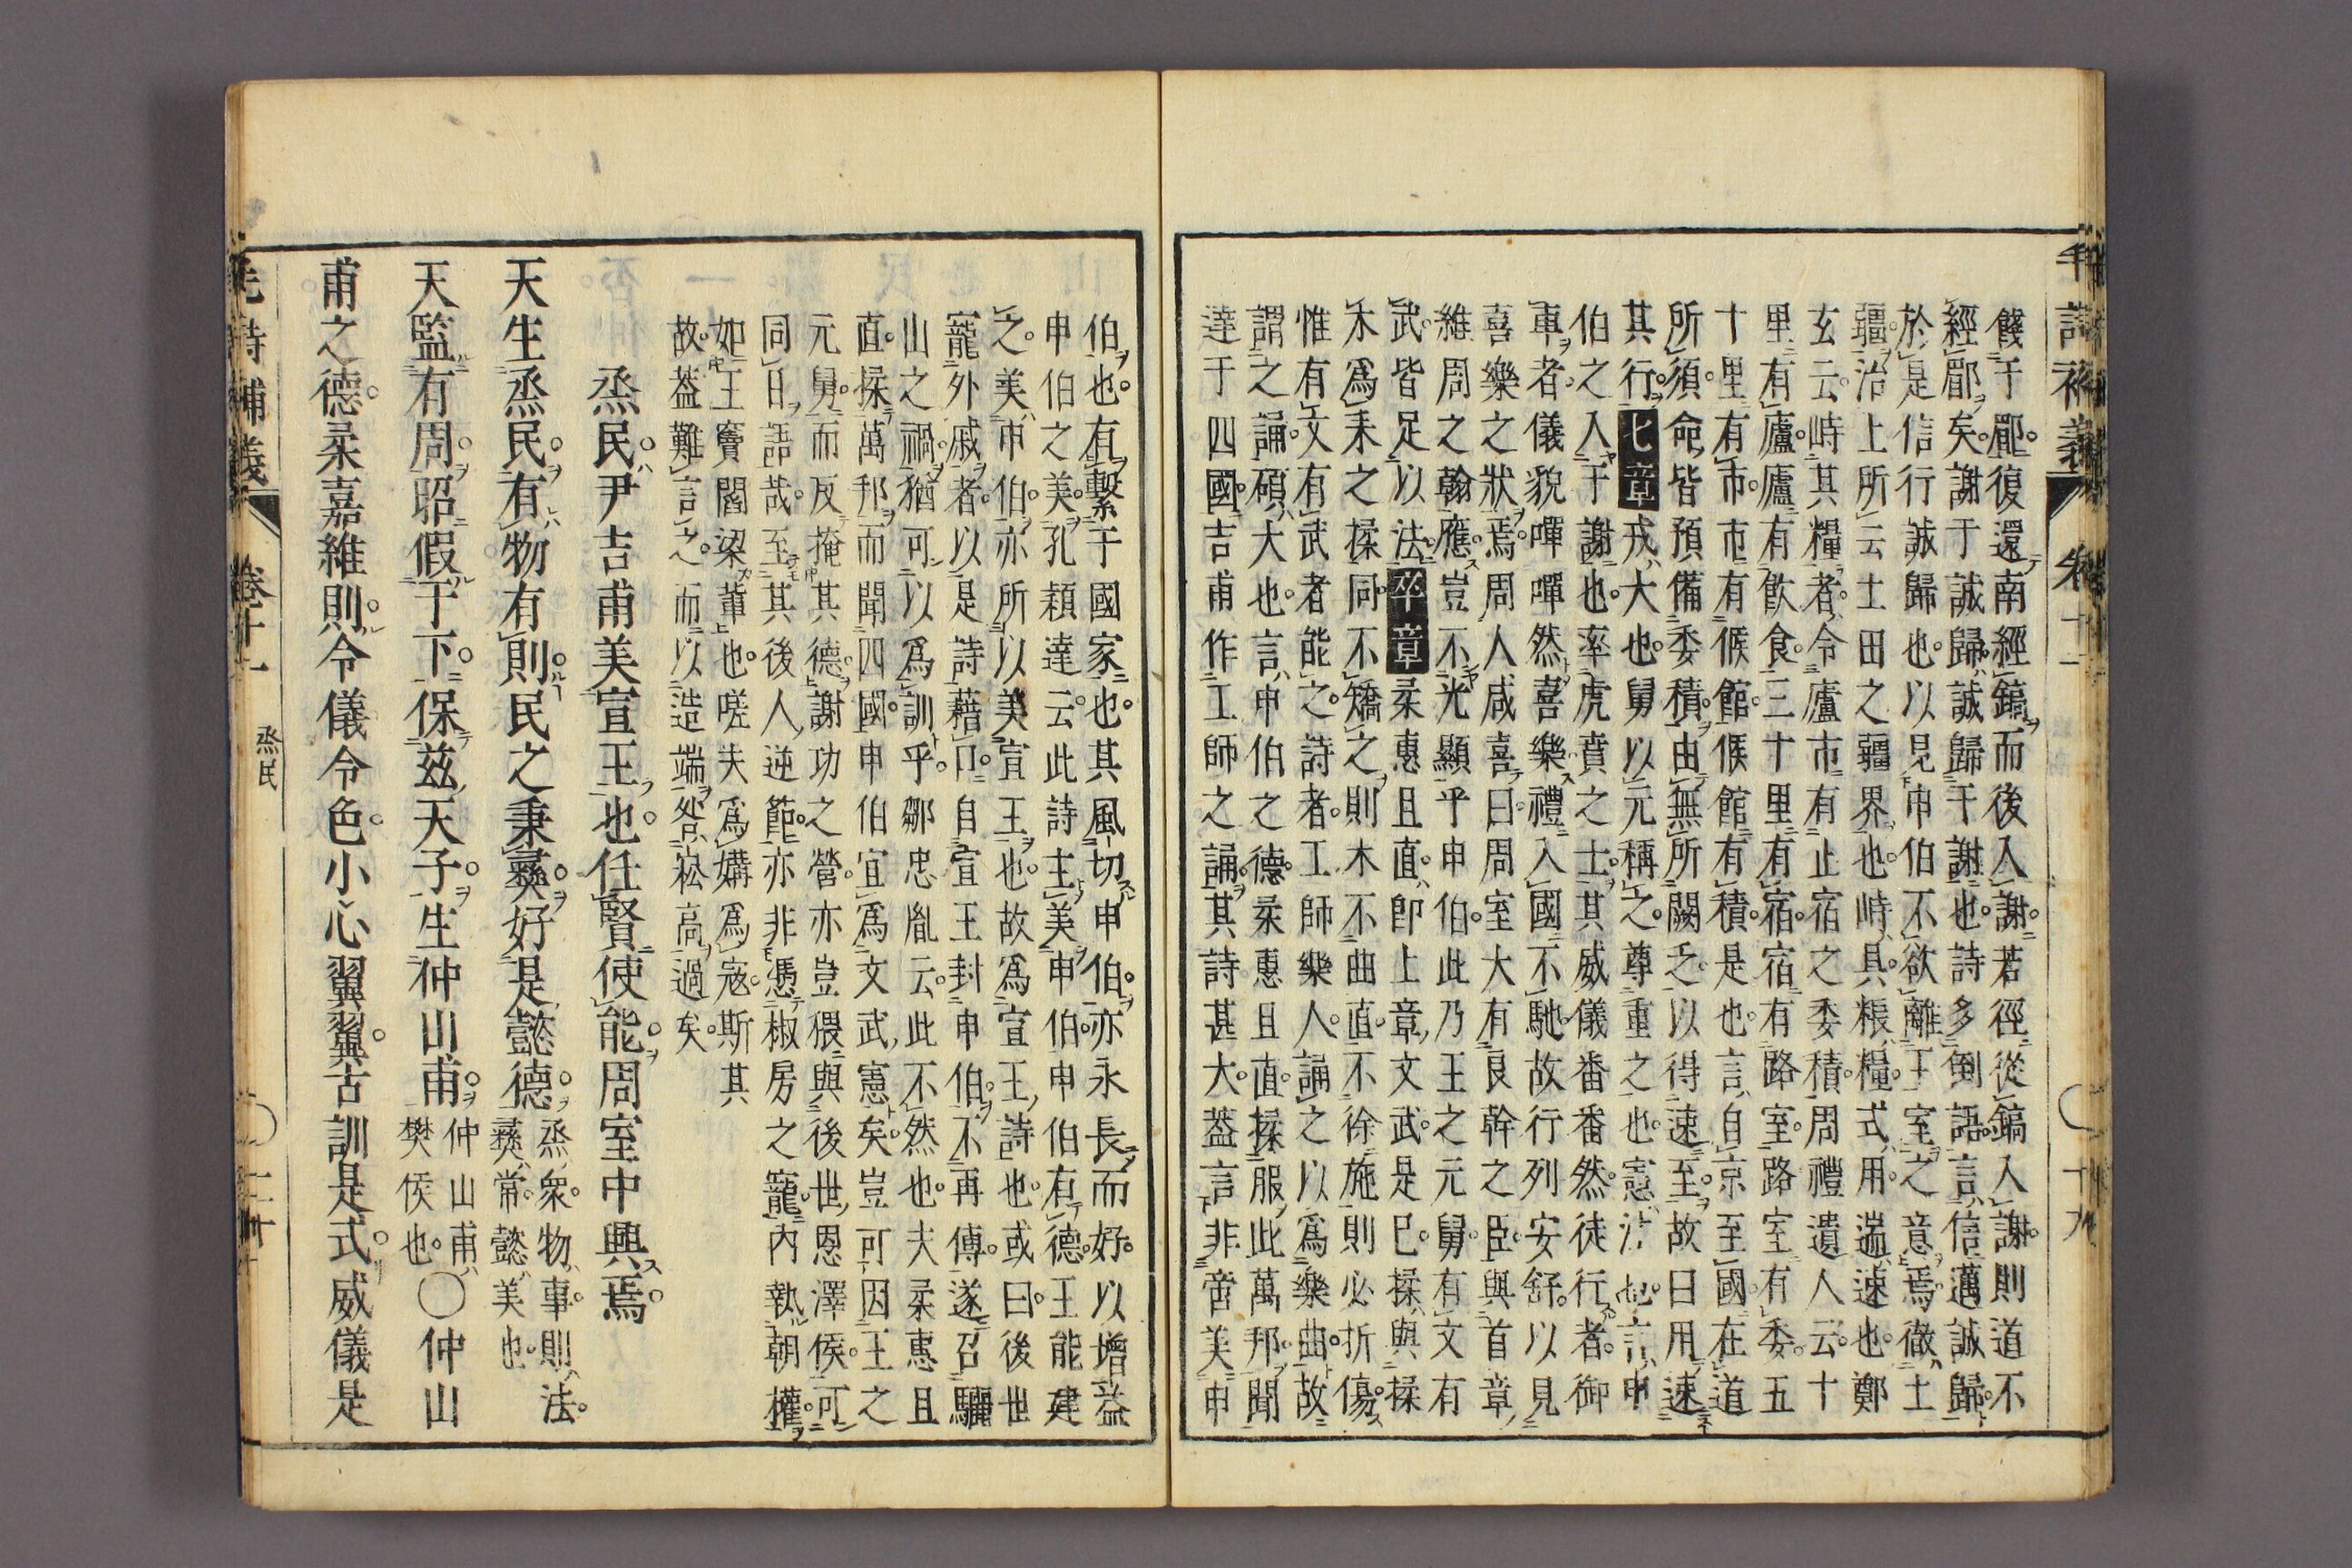 餞于郿。復還南經鎬而後入謝。若徑從鎬入謝。則道不
經郿矣。謝于誠歸。誠歸于謝也。詩多倒語。言信邁誠歸。
於是信行誠歸也。以見申伯不欲離王室之意焉。徹土
疆。治上所云土田之疆界也。峙具。粻糧。式用。遄速也。鄭
玄云。峙其糧者。令廬市有止宿之委積。周禮遺人云。十
里有廬。廬有飲食。三十里有宿。宿有路室。路室有委。五
十里有市。市有候館。候館有積。是也。言自京至國。在道
所須。命皆預備委積。由無所闕乏。以得速至。故曰用速
其行。七章戎大也。舅以元稱之。尊重之也。憲法也。言申
伯之入于謝也。率虎賁之士。其威儀番番然。徒行者。御
車者。儀貌嘽嘽然喜樂。禮入國不馳。故行列安舒。以見
喜樂之狀焉。周人咸喜曰。周室大有良幹之臣。與首章
維周之翰應。豈不光顯乎申伯。此乃王之元舅。有文有
武。皆足以法。卒章柔惠且直。卽上章文武。是已。揉與揉
木爲耒之揉同。不矯之。則木不曲直。不徐施則必折傷。
惟有文有武者能之。詩者。工師樂人。誦之以爲樂曲。故
謂之誦。碩大也。言申伯之德。柔惠且直。揉服此萬邦。聞
達于四國。吉甫作工師之誦。其詩甚大。葢言非啻美申
伯也。有繫于國家也。其風切申伯。亦永長而好。以增益
申伯之美。孔穎達云。此詩主美申伯。申伯有德。王能建
之。美申伯。亦所以美宣王也。故爲宣王詩也。或曰。後世
寵外戚者。以是詩藉口。自宣王封申伯。不再傳。遂召驪
山之禍。猶可以爲訓乎。鄒忠胤云。此不然也。夫柔惠且
直。揉萬邦而聞四國。申伯宜爲文武憲矣。豈可因王之
元舅。而反掩其德。謝功之營。亦豈猥與後世恩澤侯。可
同日語哉。至其後人逆節。亦非憑椒房之寵。內執朝權。
如王竇閻梁輩也。嗟夫爲媾爲寇。斯其
故。葢難言之。而以造端咎崧高過矣。
烝民。尹吉甫美宣王也。任賢使能。周室中興焉。
天生烝民。有物有則。民之秉彝。好是懿德。烝衆。物事。則法。
彝常。懿美也。
天監有周。昭假于下。保兹天子。生仲山甫。仲山甫。
樊侯也。〇仲山
甫之德。柔嘉維則。令儀令色。小心翼翼。古訓是式。威儀是
毛詩補義
卷十一
烝民
二十
毛詩補義
卷十一
十九